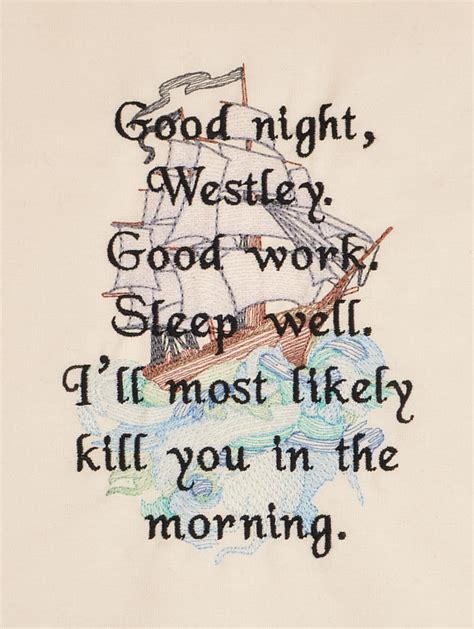 Good night,
Westley.
Good work.
Sleep well.
I'll most likely
kill you in the
morning.